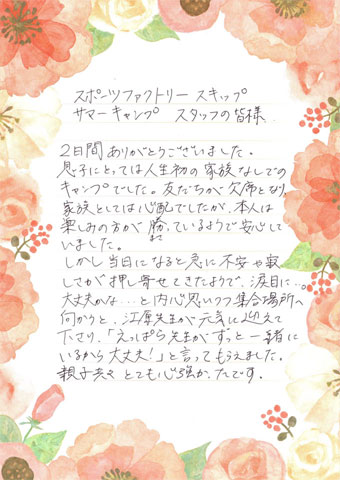 スポーツファクトリー スキップ
サマーキャンプ スタッフの皆様
2日間ありがとうございました。
息子にとっては人生初の家族なしでの
キャンプでした。友だちが欠席となり
家族としては心配でしたが、本人は
楽しみの方が勝っているようで安心して
いました。
しかし当日になると急に不安や寂
しさが押し寄せてきたようで、涙目に…。
大丈夫かな…と内心思いつつ集合場所へ
向かうと、江原先生が元気に迎えて
下さり、「えっぱら先生がずっと一緒に
いるから大丈夫!」と言ってもらえました。
親子共々とても心強かったです。